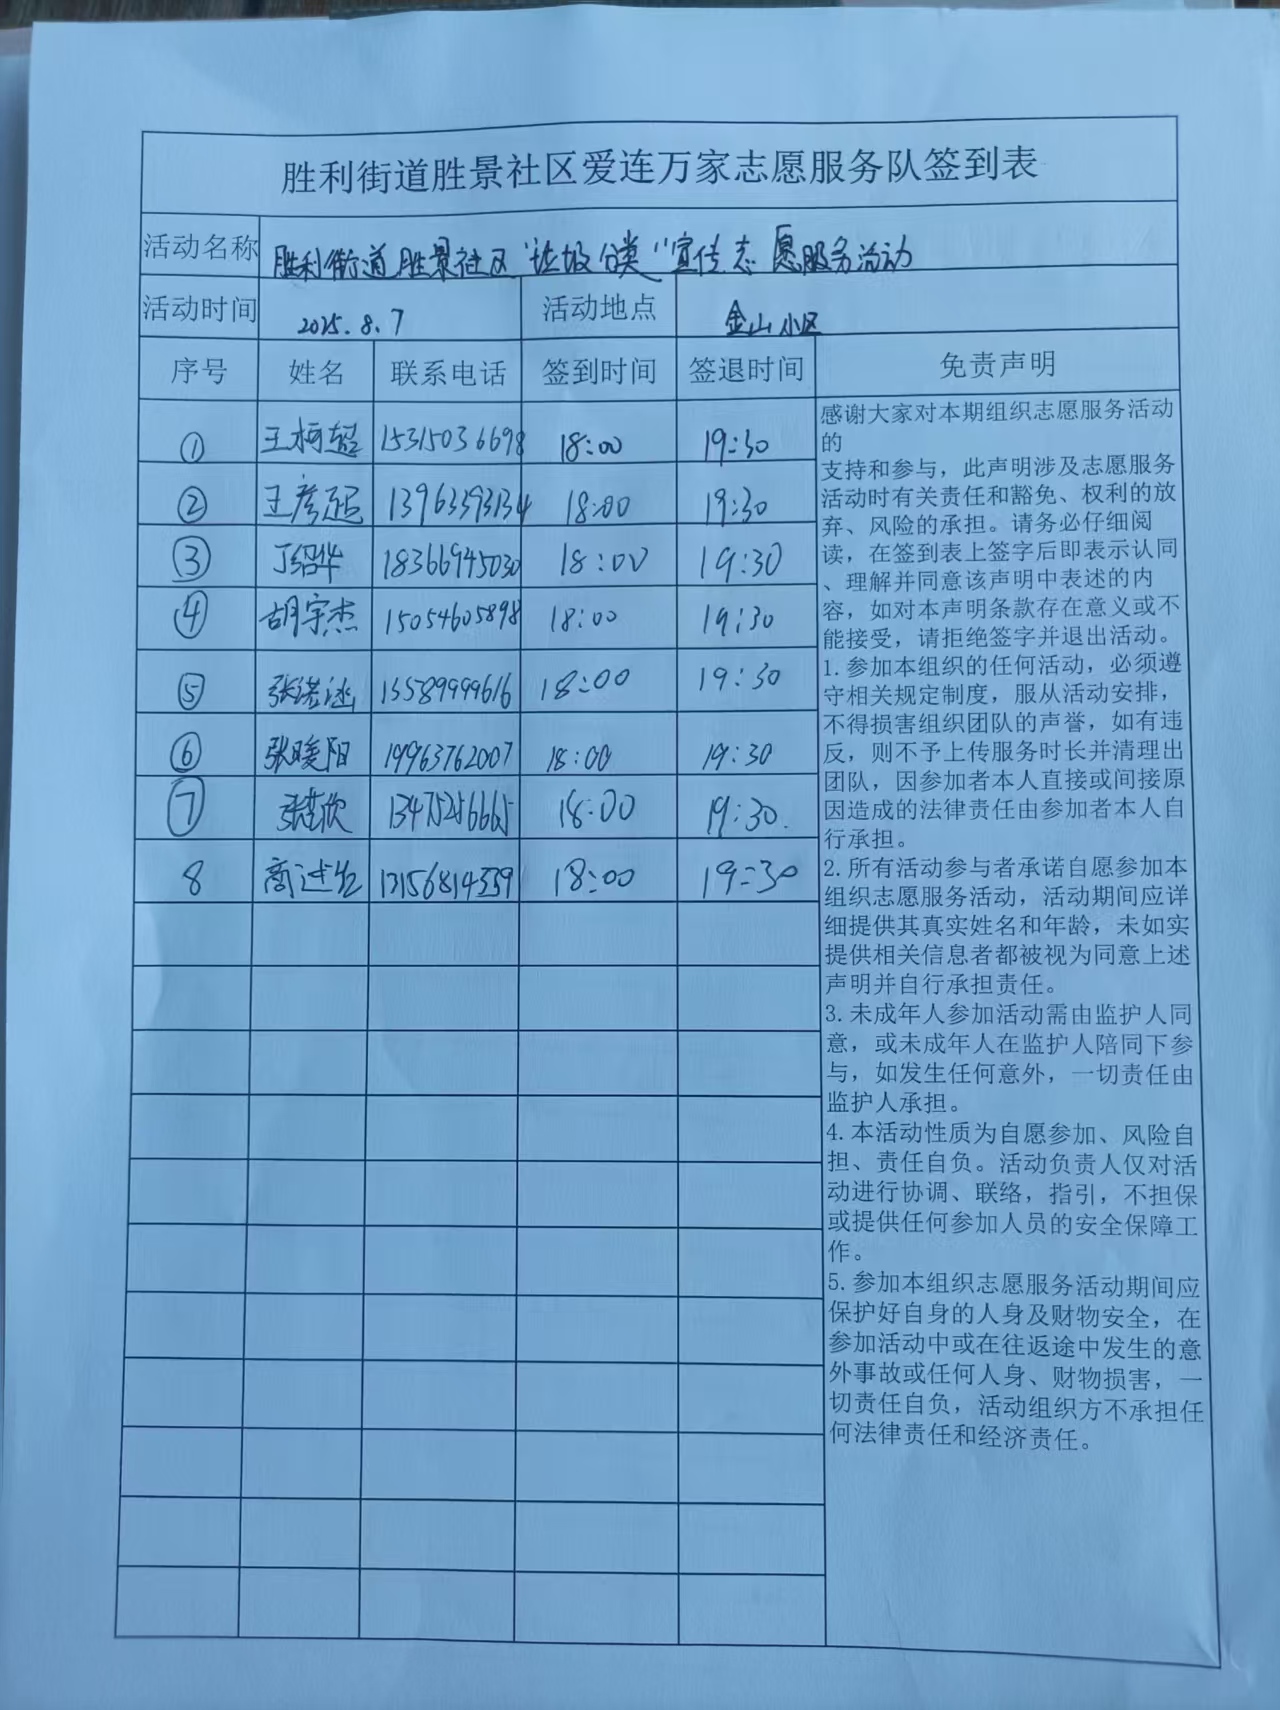 胜利街道胜景社区爱连万家志愿服务队签到表
活动名称 胜利街道胜景社区“垃圾分类”宣传志愿服务活动
活动时间 2025.8.7 活动地点 金山小区
序号 姓名 联系电话 签到时间 签退时间 免责声明
① 王柯超 15315036698 18:00 19:30
② 王彦超 13963393134 18:00 19:30
③ 丁绍华 18366945030 18:00 19:30
④ 胡宇杰 15054605898 18:00 19:30
⑤ 张洪涵 13589999616 18:00 19:30
⑥ 张暖阳 19963762007 18:00 19:30
⑦ 13475256665 18:00 19:30.
8 商进生 13156814559 18:00 19:30
感谢大家对本期组织志愿服务活动
的
支持和参与，此声明涉及志愿服务
活动时有关责任和豁免、权利的放
弃、风险的承担。请务必仔细阅
读，在签到表上签字后即表示认同
、理解并同意该声明中表述的内
容，如对本声明条款存在意义或不
能接受，请拒绝签字并退出活动。
1.参加本组织的任何活动，必须遵
守相关规定制度，服从活动安排，
不得损害组织团队的声誉，如有违
反，则不予上传服务时长并清理出
团队，因参加者本人直接或间接原
因造成的法律责任由参加者本人自
行承担。
2.所有活动参与者承诺自愿参加本
组织志愿服务活动，活动期间应详
细提供其真实姓名和年龄，未如实
提供相关信息者都被视为同意上述
声明并自行承担责任。
3.未成年人参加活动需由监护人同
意，或未成年人在监护人陪同下参
与，如发生任何意外，一切责任由
监护人承担。
4.本活动性质为自愿参加、风险自
担、责任自负。活动负责人仅对活
动进行协调、联络，指引，不担保
或提供任何参加人员的安全保障工
作。
5.参加本组织志愿服务活动期间应
保护好自身的人身及财物安全，在
参加活动中或在往返途中发生的意
外事故或任何人身、财物损害，一
切责任自负，活动组织方不承担任
何法律责任和经济责任。